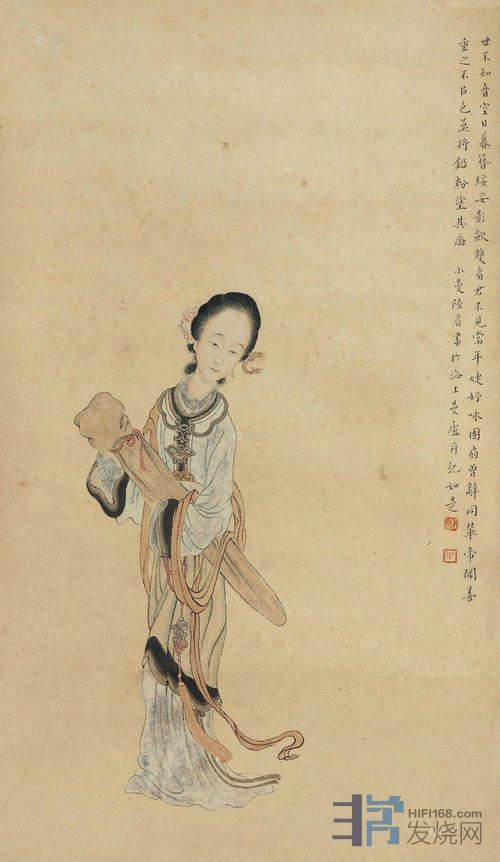 世不知音空日暮簪綬妄影敛雙眉君不見當年婕妤咏團扇曾辭同輦帝聞善
重之不以色莫將鉛粉塗其
小曼陸眉畫於海上曼廬并記如是
HIFI168.com
发烧网